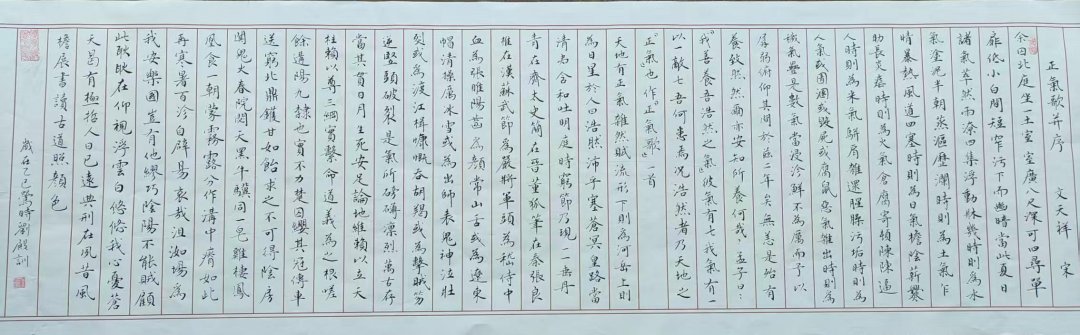 正氣歌并序
文天祥 宋
余囚北庭坐一土室室廣八尺深可四尋單
扉低小白間短窄污下而幽暗當此夏日
諸氣萃然雨潦四集浮動牀幾時則為水
氣塗泥半朝蒸漚歷瀾時則為土氣乍
晴暴熱風道四塞時則為日氣檐陰薪爨
助長炎虐時則為火氣倉腐寄頓陳陳逼
人時則為米氣駢肩雜遝腥臊污垢時則為
人氣或圊溷或毀屍或腐鼠惡氣雜出時則為
穢氣疊是數氣當侵沴鮮不為厲而予以
孱弱俯仰其間於茲二年矣無恙是殆有
養致然然爾亦安知所養何哉，孟子曰：
“我善養吾浩然之氣”彼氣有七我氣有一
以一敵七吾何患焉況浩然者乃天地之
正氣也作“正氣歌”一首
天地有正氣雜然賦流形下則為河岳上則
為日星於人曰浩然沛乎塞蒼冥皇路當
清夷含和吐明庭時窮節乃現一一垂丹
青在齊太史簡在晉董狐筆在秦張良
椎在漢蘇武節為嚴將軍頭為嵇侍中
血為張睢陽齒為顏常山舌或為遼東
帽清操厲冰雪或為出師表鬼神泣壯
烈或為渡江楫慷慨吞胡羯或為擊賊笏
逆豎頭破裂是氣所磅礴凜烈萬古存
當其貫日月生死安足論地維賴以立天
柱賴以尊三綱實繫命道義為之根嗟
餘遘陽九隸也實不力楚囚纓其冠傳車
送窮北鼎鑊甘如飴求之不可得陰房
闐鬼火春院閟天黑牛驥同一皂雞棲鳳
凰食一朝蒙霧露分作溝中瘠如此
再寒暑百沴自辟易哀哉沮洳場為
我安樂國豈有他繆巧陰陽不能賊顧
此耿耿在仰視浮雲白悠悠我心憂蒼
天曷有極哲人日已遠典刑在夙昔風
檐展書讀古道照顏色
歲在乙巳驚時劉殿訓